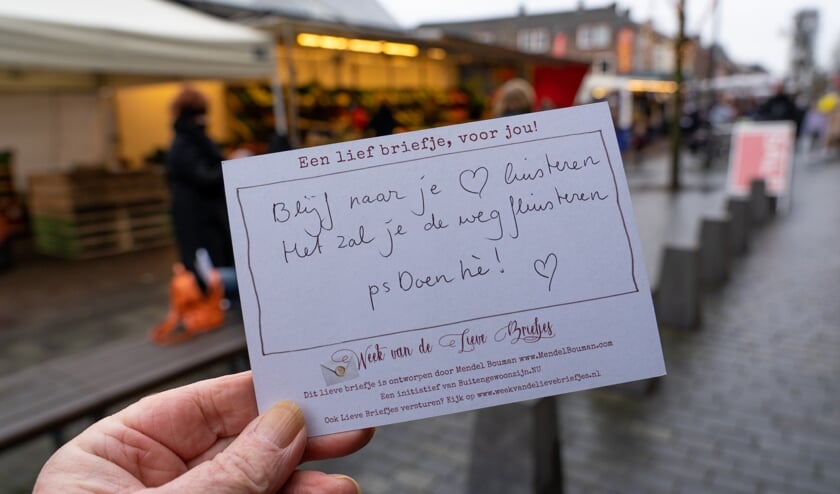 Een lief briefje, voor jou!
Blijf naar je ♡ luisteren
Het zal je de weg fluisteren
ps Doen hè! ♡
Week van de Lieve Briefjes
Dit lieve briefje is ontworpen door Mendel Bouman www.MendelBouman.com
Een initiatief van Buitengewoonzijn.NU
Ook Lieve Briefjes versturen? Kijk op www.weekvandelievebriefjes.nl